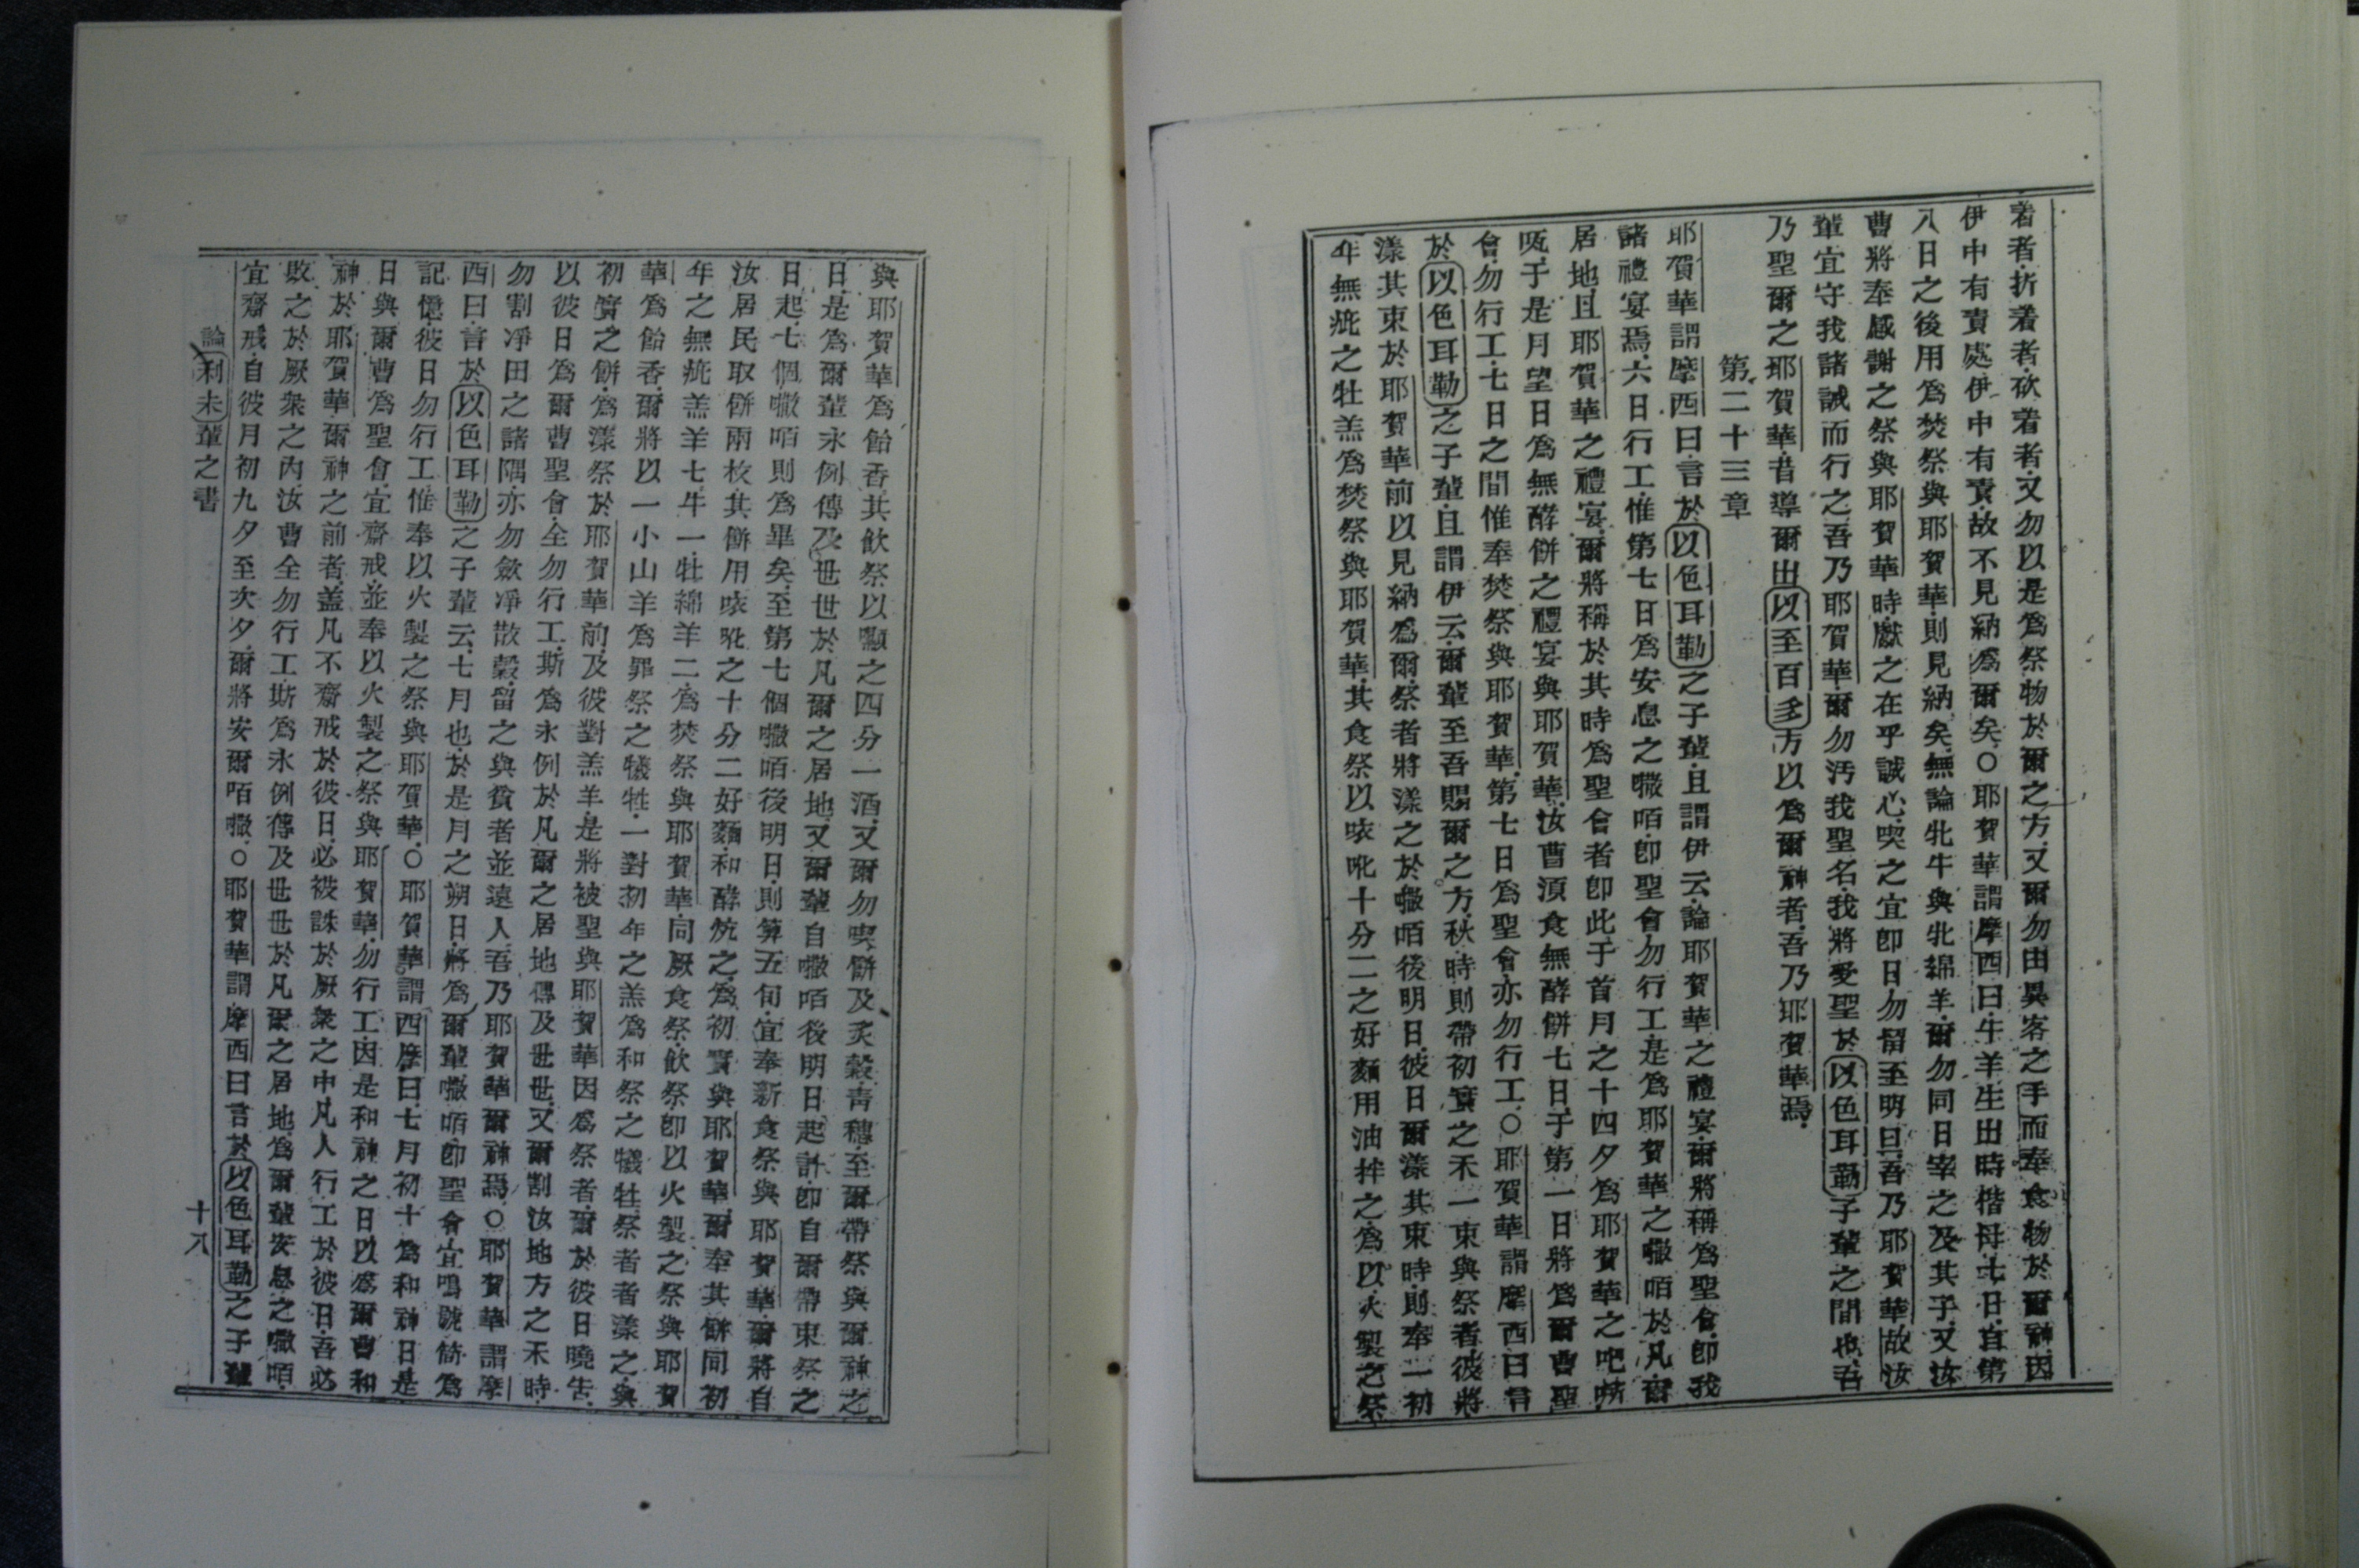 着者、折着者、砍着者、又勿以是爲祭物於爾之方、又爾勿由異客之手而奉食物於爾神、因
伊中有責處、伊中有責、故不見納爲爾矣、○耶賀華謂摩西曰、牛羊生出時偕母七日、自第
八日之後用爲焚祭與耶賀華、則見納矣、無論牝牛與牝綿羊、爾勿同日宰之及其子、又汝
曹將奉感謝之祭與耶賀華時、獻之在乎誠心、喫之宜卽日勿留至明旦、吾乃耶賀華、故汝
輩宜守我諸誡而行之、吾乃耶賀華、爾勿汚我聖名、我將受聖於以色耳勒子輩之間也、吾
乃聖爾之耶賀華、昔導爾出以至百多方以爲爾神者、吾乃耶賀華焉、
第二十三章
耶賀華謂摩西曰、言於以色耳勒之子輩、且謂伊云、論耶賀華之禮宴、爾將稱爲聖會、卽我
諸禮宴焉、六日行工、惟第七日爲安息之㘔咟、卽聖會、勿行工、是爲耶賀華之㘔咟於凡爾
居地、且耶賀華之禮宴、爾將稱於其時爲聖會者卽此、于首月之十四夕爲耶賀華之吧㗭
㕵、于是月望日爲無酵餅之禮宴與耶賀華、汝曹須食無酵餅七日、于第一日將爲爾曹聖
會、勿行工、七日之間惟奉焚祭與耶賀華、第七日爲聖會、亦勿行工、○耶賀華謂摩西曰、言
於以色耳勒之子輩、且謂伊云、爾輩至吾賜爾之方、秋時則帶初實之禾一束與祭者、彼將
漾其束於耶賀華前、以見納爲爾、祭者將漾之於㘔咟後明日、彼日爾漾其束時、則奉一初
年無疵之牡羔爲焚祭與耶賀華、其食祭以咳吡十分二之好麵用油拌之、爲以火製之祭
與耶賀華爲飴香、其飲祭以㘔之四分一酒、又爾勿喫餅及炙穀靑穗、至爾帶祭與爾神之
日、是爲爾輩永例傳及世世於凡爾之居地、又爾輩自㘔咟後明日起計、卽自爾帶束祭之
日起、七個㘔咟則爲畢矣、至第七個㘔咟後明日、則算五旬、宜奉新食祭與耶賀華、爾將自
汝居民取餅兩枚、其餅用咳吡之十分二好麵、和酵炕之、爲初實與耶賀華、爾奉其餅同初
年之無疵羔羊七、牛一、牡綿羊二、爲焚祭與耶賀華、同厥食祭、飲祭、卽以火製之祭與耶賀
華爲飴香、爾將以一小山羊爲罪祭之犧牲、一對初年之羔爲和祭之犧牲、祭者者漾之與
初實之餅、爲漾祭於耶賀華前、及彼對羔羊、是將被聖與耶賀華因爲祭者、爾於彼日曉告、
以彼日爲爾曹聖會、全勿行工、斯爲永例於凡爾之居地傳及世世、又爾割汝地方之禾時、
勿割凈田之諸隅、亦勿斂凈散穀、留之與貧者並遠人、吾乃耶賀華爾神焉、○耶賀華謂摩
西曰、言於以色耳勒之子輩云、七月也、於是月之朔日、將爲爾輩㘔咟、卽聖會、宜鳴號筒爲
記憶、彼日勿行工、惟奉以火製之祭與耶賀華、○耶賀華謂西摩曰、七月初十爲和神日、是
日與爾曹爲聖會、宜齋戒、並奉以火製之祭與耶賀華、勿行工、因是和神之日、以爲爾曹和
神於耶賀華爾神之前者、蓋凡不齋戒於彼日、必被誅於厥衆之中、凡人行工於彼日、吾必
敗之於厥衆之內、汝曹全勿行工、斯爲永例傳及世世於凡爾之居地、爲爾輩安息之㘔咟、
宜齋戒、自彼月初九夕至次夕、爾將安爾咟㘔、○耶賀華謂摩西曰、言於以色耳勒之子輩
論利未輩之書
十八